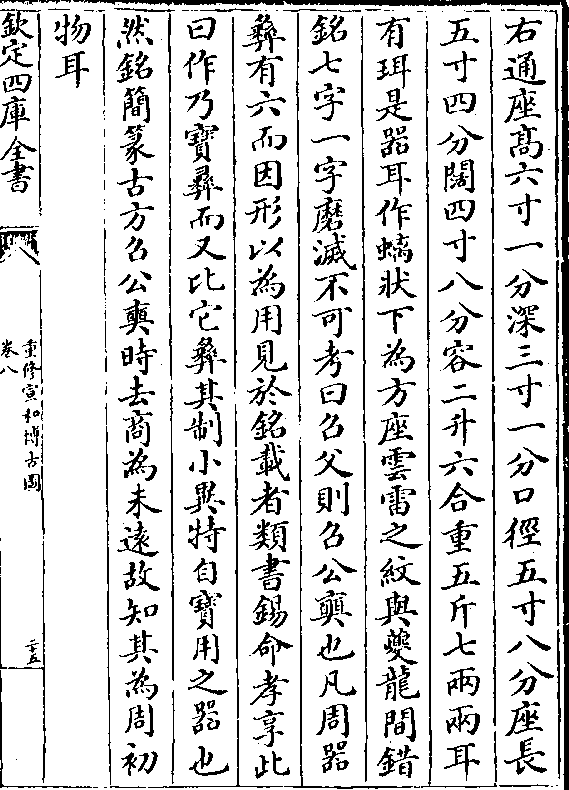 右通座髙六寸一分深三寸一分口徑五寸八分座長
五寸四分闊四寸八分容二升六合重五斤七兩兩耳
有珥是器耳作螭狀下為方座雲雷之紋與夔龍間錯
銘七字一字磨滅不可考曰召父則召公奭也凡周器
彝有六而因形以為用見於銘載者類書錫命孝享此
曰作乃寶彝而又比它彝其制小異特自寶用之器也
然銘簡篆古方召公奭時去商為未遠故知其為周初
物耳
欽定四庫全書
重修宣和博古圖
卷八
二十五